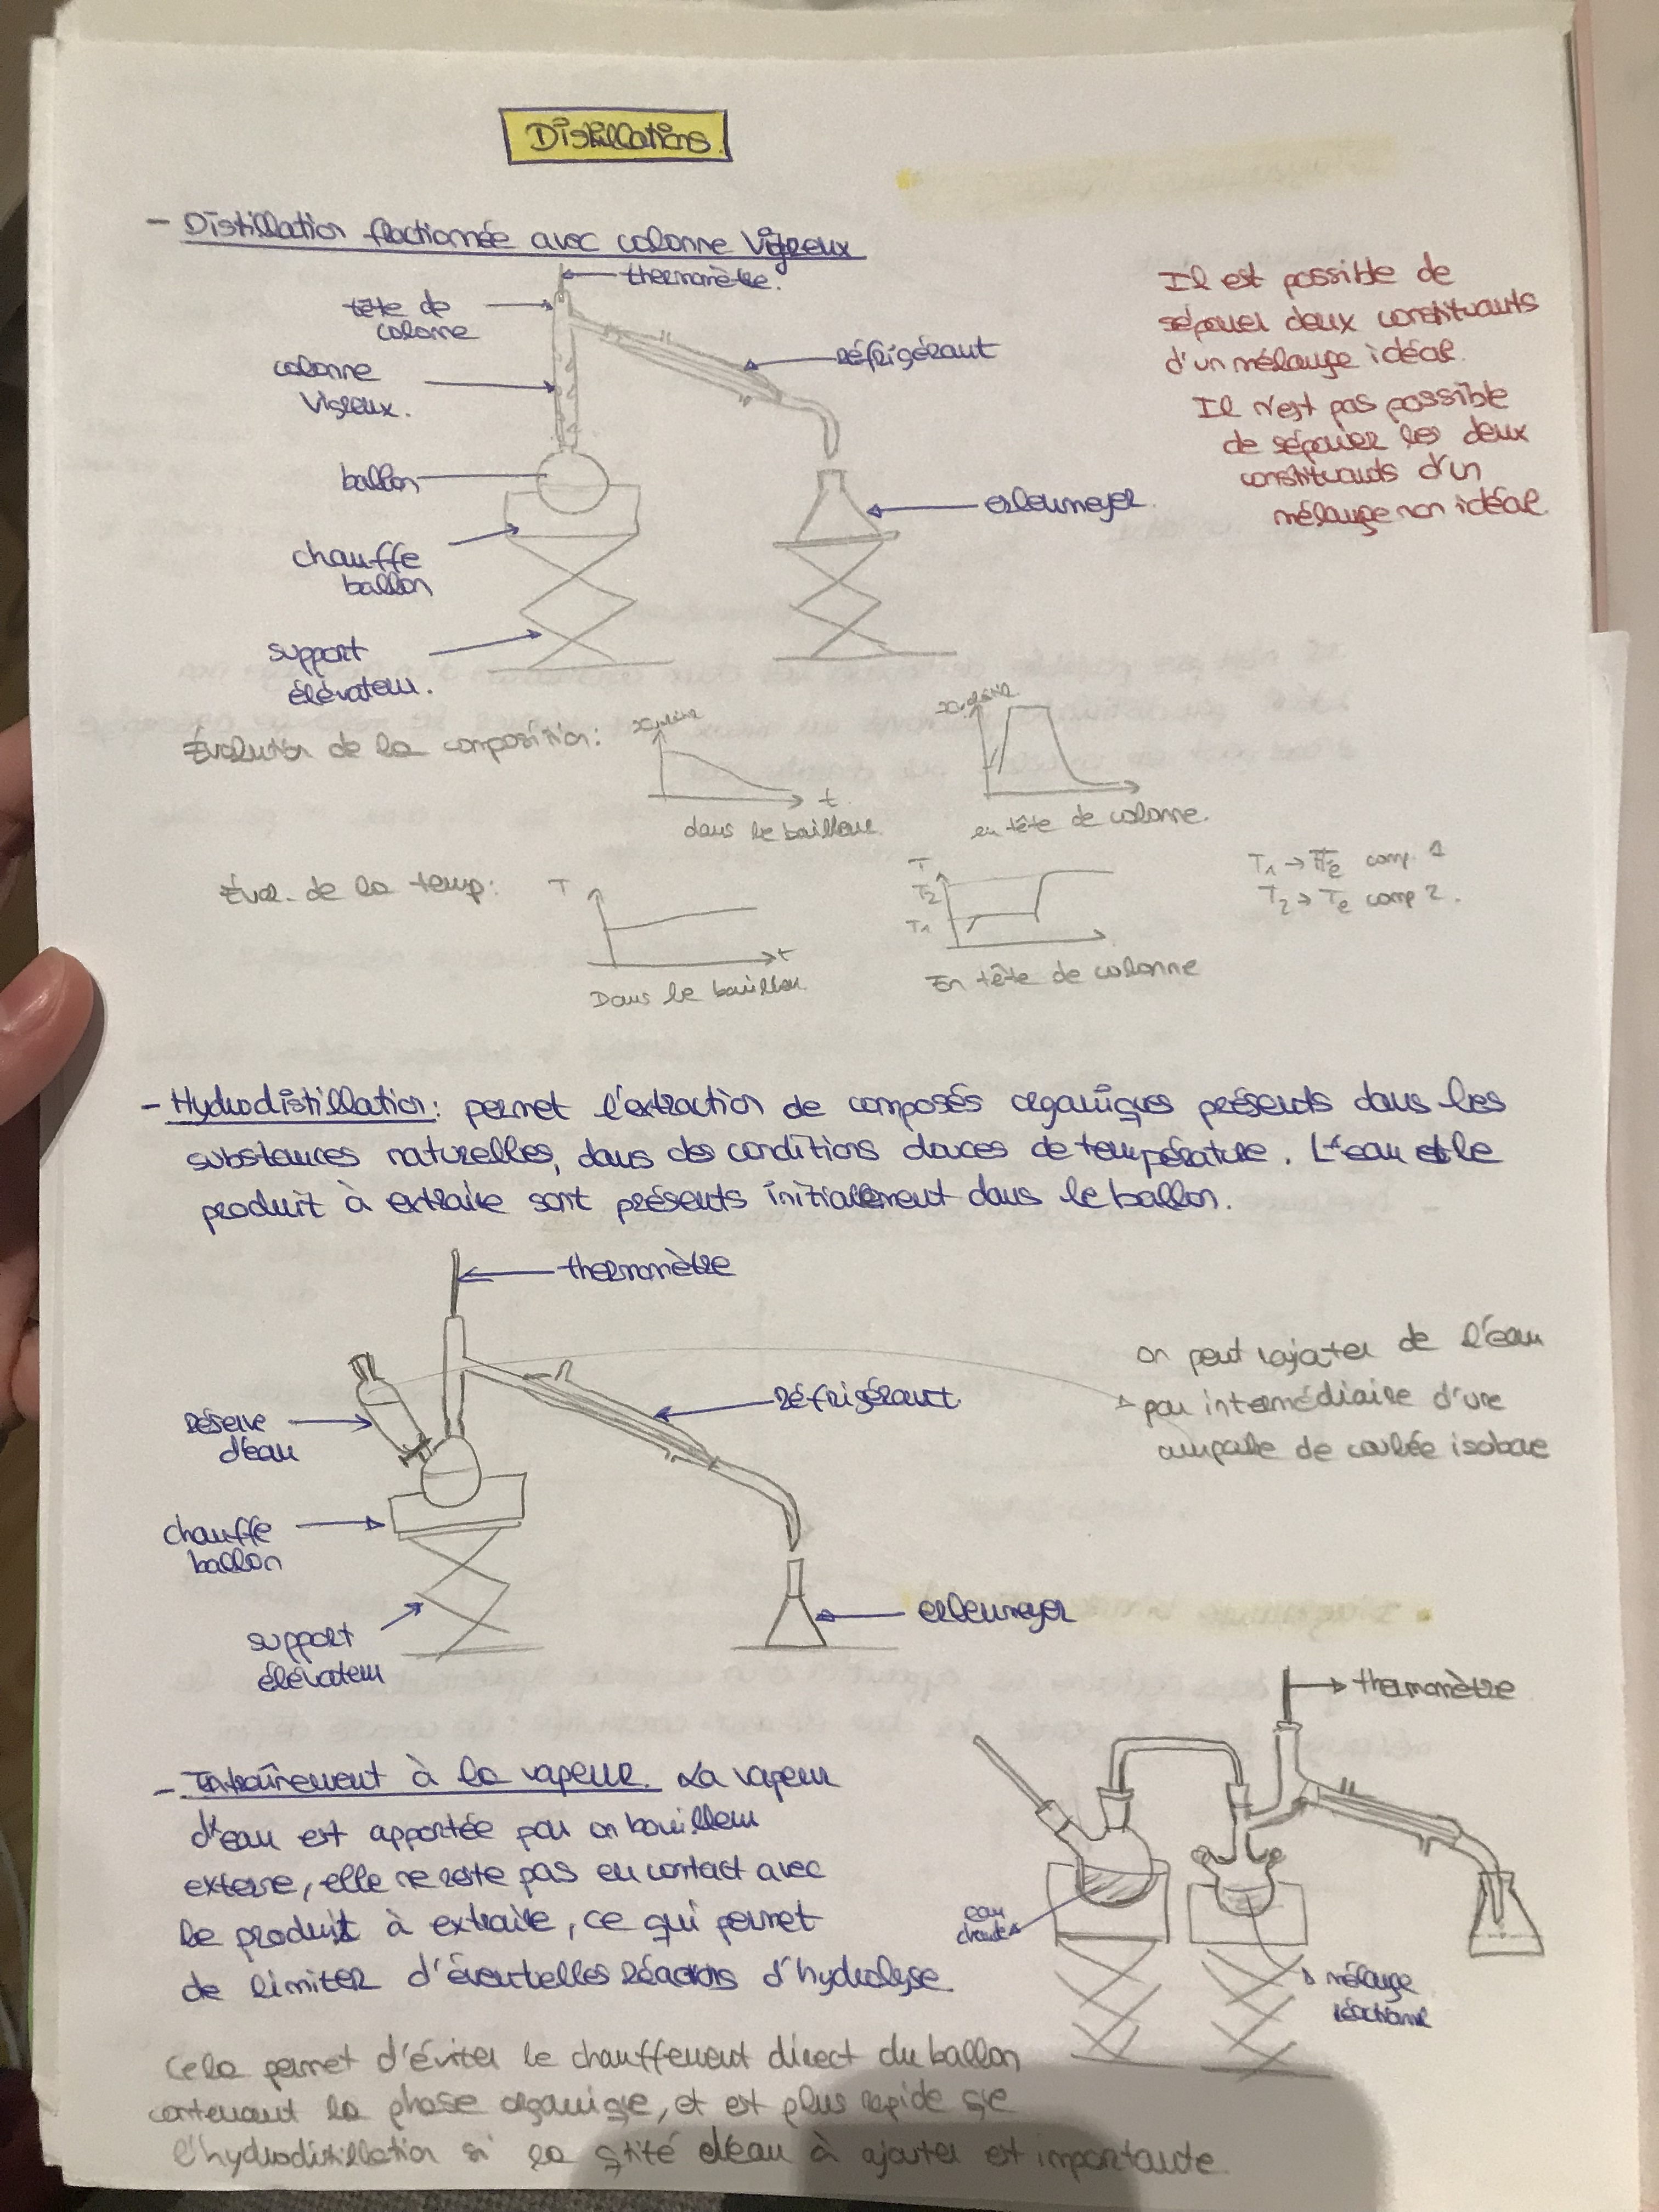 Distillations.
- Distillation fractionnée avec colonne Vigreux
thermomètre.
tête de
colonne
colonne
Vigreux.
réfrigérant
ballon
erlenmeyer
chauffe
ballon
support
élévateur.
Il est possible de
séparer deux constituants
d'un mélange idéal.
Il n'est pas possible
de séparer les deux
constituants d'un
mélange non idéal.
Évolution de la composition:
t
dans le bouilleur.
en tête de colonne.
Évol. de la temp:
T
t
Dans le bouilleur.
T
T2
T1
En tête de colonne
T1 → Te comp. 1
T2 → Te comp 2.
- Hydrodistillation: permet l'extraction de composés organiques présents dans les
substances naturelles, dans des conditions douces de température. L'eau et le
produit à extraire sont présents initialement dans le ballon.
thermomètre
réserve
d'eau
réfrigérant.
chauffe
ballon
support
élévateur
erlenmeyer
on peut rajouter de l'eau
par intermédiaire d'une
ampoule de coulée isobare
- Entraînement à la vapeur. La vapeur
d'eau est apportée par un bouilleur
externe, elle ne reste pas en contact avec
le produit à extraire, ce qui permet
de limiter d'éventuelles réactions d'hydrolyse.
thermomètre
eau
chaude
mélange
réactionnel
Cela permet d'éviter le chauffement direct du ballon
contenant la phase organique, et est plus rapide que
l'hydrodistillation si la qtité d'eau à ajouter est importante.